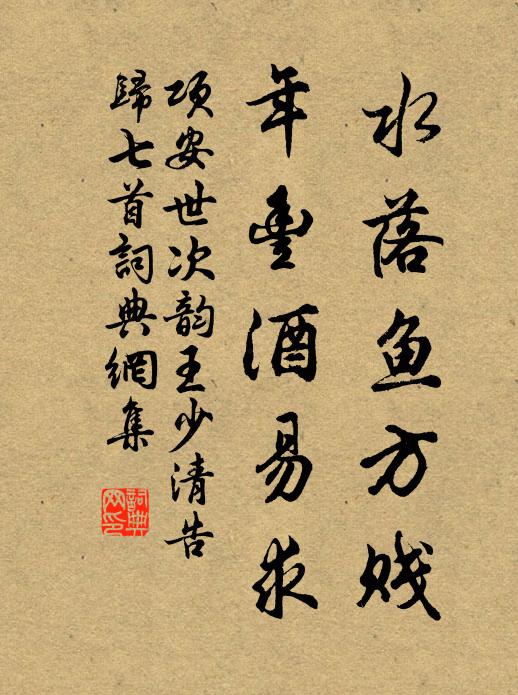 水落鱼方贱
年豊酒易求
项安世次韵王少清告
歸七首詞典網集
詞典網印